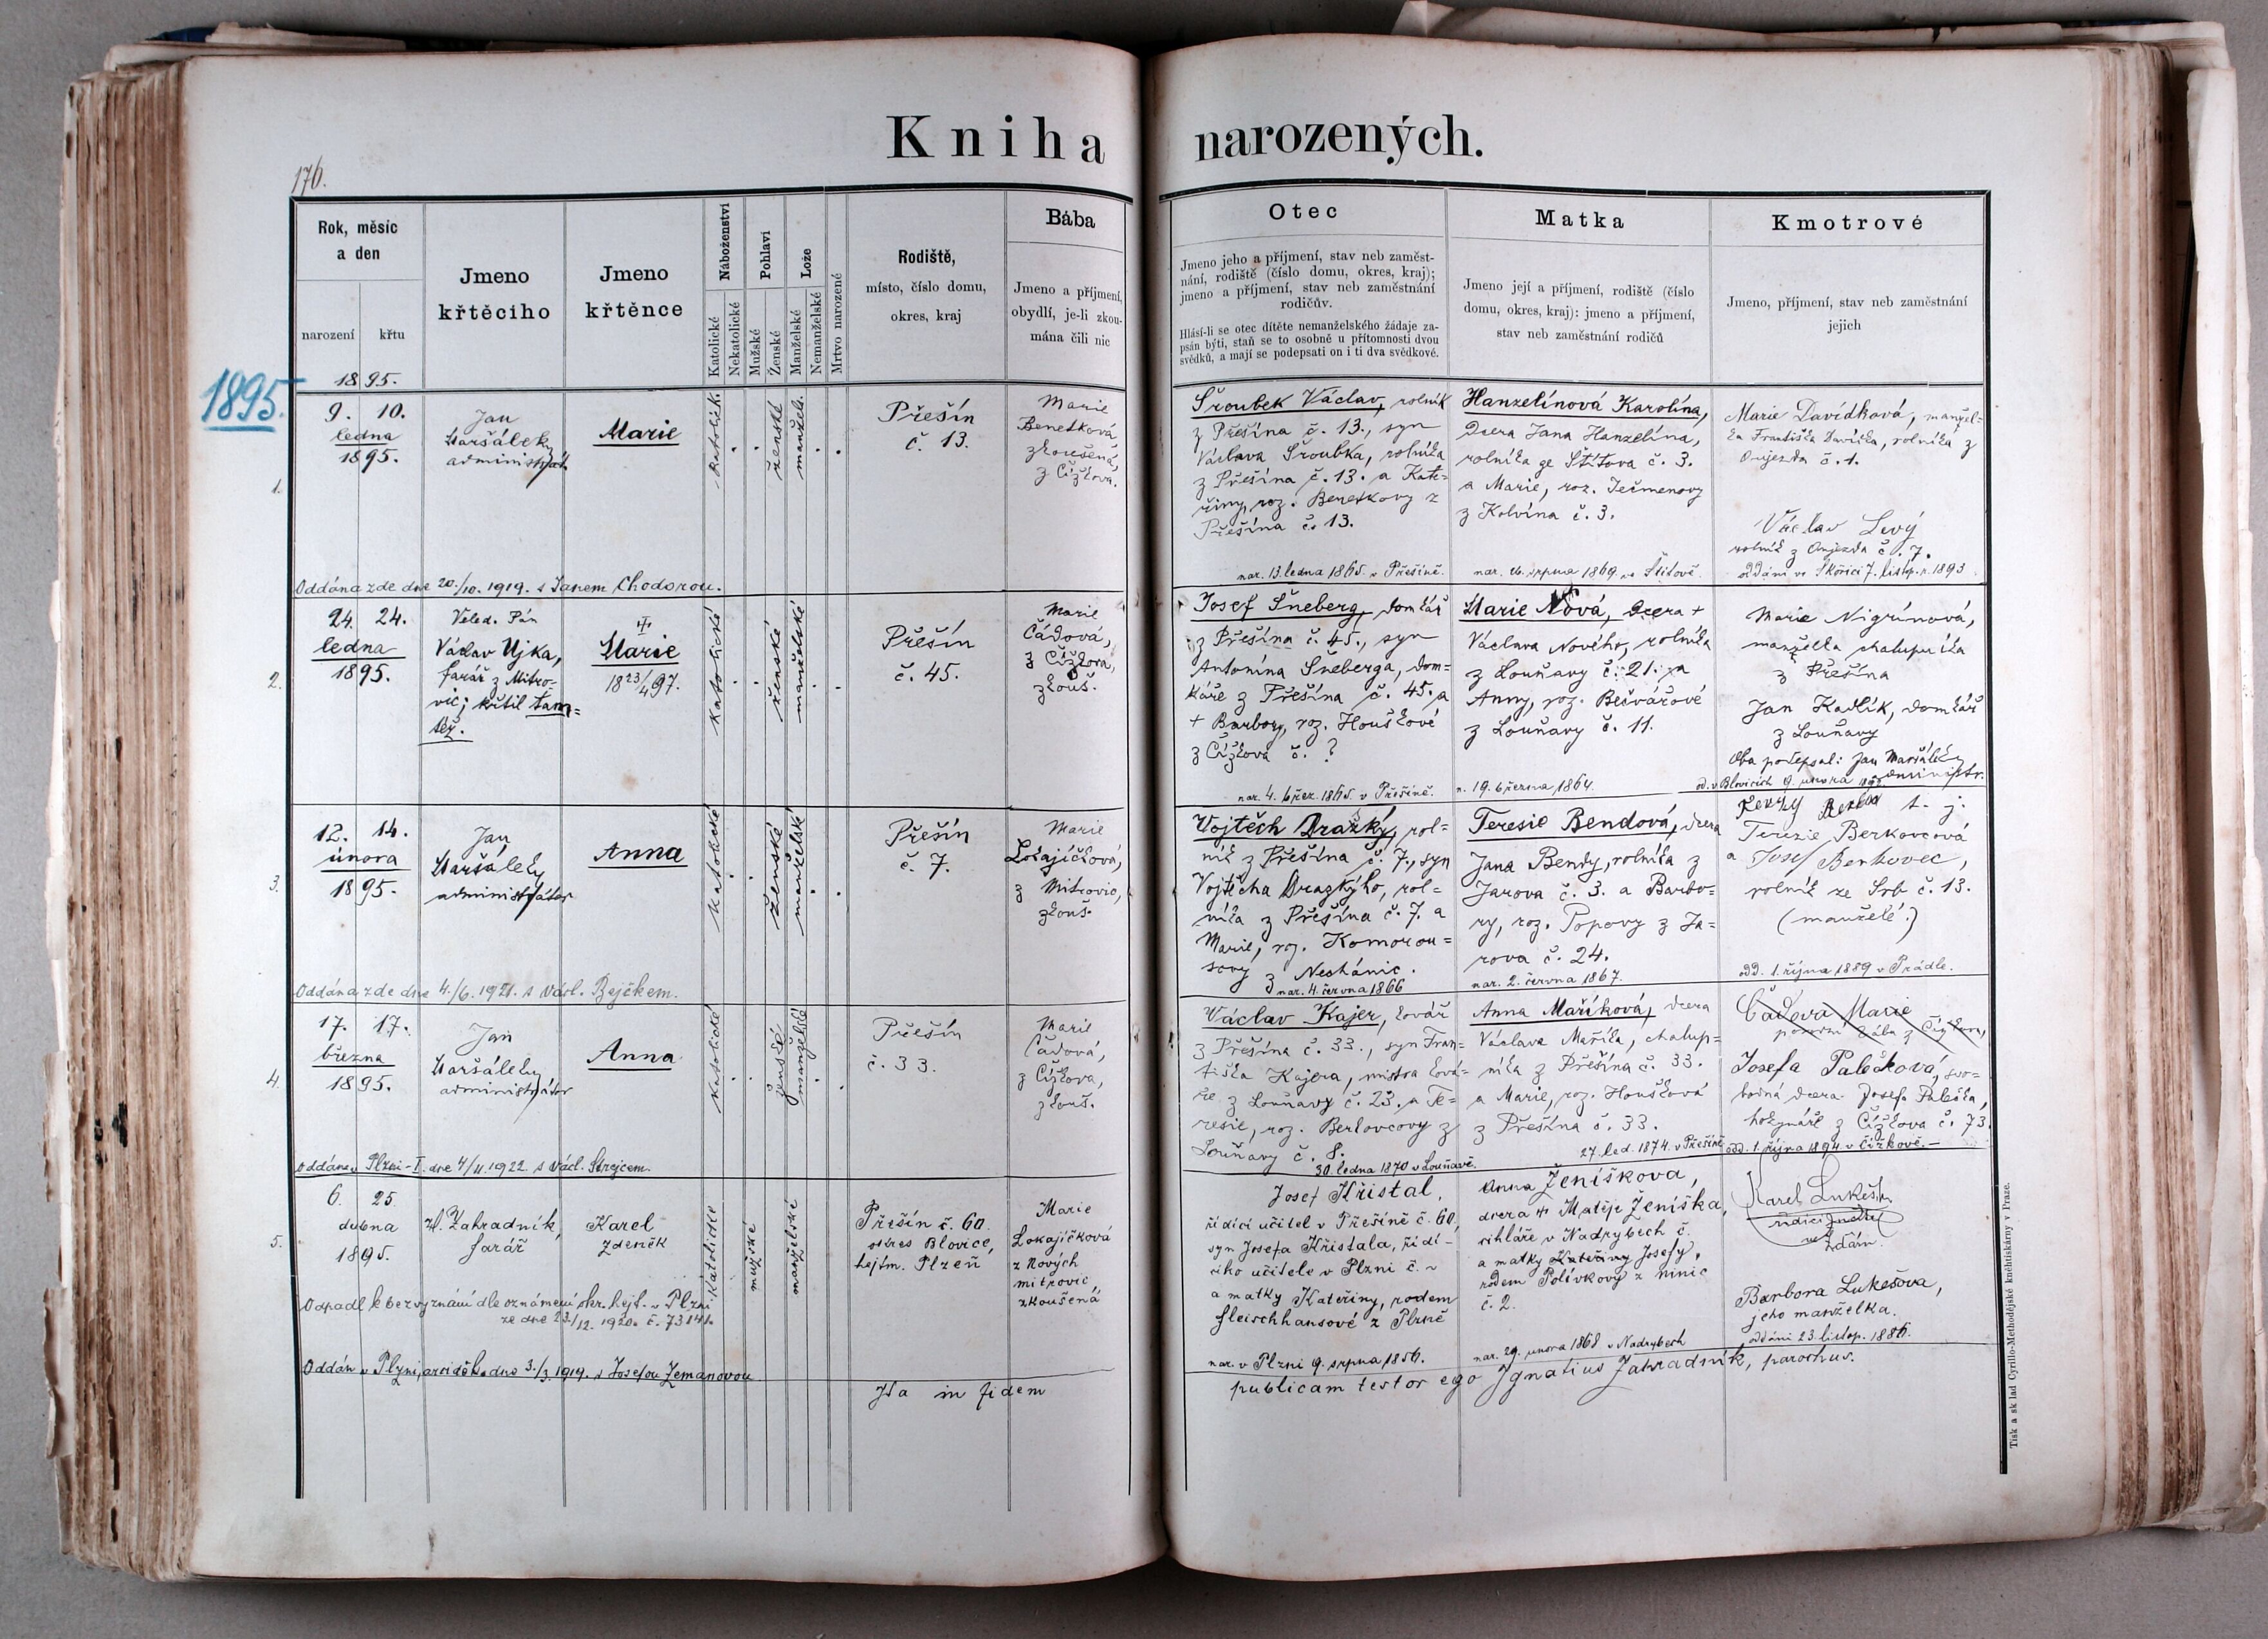 Kniha narozených.
176.
Rok, měsíc
a den
narození
křtu
Jmeno
křtěcího
Jmeno
křtěnce
Náboženství
Katolické
Nekatolické
Pohlaví
Mužské
Ženské
Lože
Manželské
Nemanželské
Mrtvo narozené
Rodiště,
místo, číslo domu,
okres, kraj
Bába
Jmeno a příjmení,
obydlí, je-li zkou-
mána čili nic
Otec
Jmeno jeho a příjmení, stav neb zaměst-
nání, rodiště (číslo domu, okres, kraj);
jmeno a příjmení, stav neb zaměstnání
rodičův.
Hlásí-li se otec dítěte nemanželského žádaje za-
psán býti, staň se to osobně u přítomnosti dvou
svědků, a mají se podepsati on i ti dva svědkové.
Matka
Jmeno její a příjmení, rodiště (číslo
domu, okres, kraj): jmeno a příjmení,
stav neb zaměstnání rodičů
Kmotrové
Jmeno, příjmení, stav neb zaměstnání
jejich
1895.
1895.
1.
9. 10.
ledna
1895.
Jan
Maršálek
administrát
Marie
katolick.
ženské
manžels.
Přešín
č. 13.
Marie
Benetková,
zkoušená,
z Čížkova.
Šroubek Václav, rolník
z Přešína č. 13., syn
Václava Šroubka, rolníka
z Přešína č. 13. a Kate-
řiny, roz. Benetkovy z
Přešína č. 13.
nar. 13. ledna 1865. v Přešíně.
Hanzelínová Karolína,
dcera Jana Hanzelína,
rolníka ze Štítova č. 3.
a Marie, roz. Ječmenovy
z Kolvína č. 3.
nar. 26. srpna 1869. ve Štítově.
Marie Davídková, manžel-
ka Františka Davídka, rolníka z
Oujezda č. 1.
Václav Levý
rolník z Oujezda č. 7.
oddáni ve Skořici 7. listop. r. 1893
Oddána zde dne 20./10. 1919. s Janem Chodorou.
2.
24. 24.
ledna
1895.
Veled. Pán
Václav Ujka,
farář z Mitro-
vic; křtil tam-
též.
Marie
18 23/4 97.
katolické
ženské
manželské
Přešín
č. 45.
Marie
Čáďová,
z Čížkova,
zkouš.
Josef Šneberg, domkář
z Přešína č. 45., syn
Antonína Šneberga, dom-
káře z Přešína č. 45. a
+ Barbory, roz. Houškové
z Čížkova č. ?
nar. 4. břez. 1865. v Přešíně.
Marie Nová, dcera +
Václava Nového, rolníka
z Louňavy č. 21. a
Anny, roz. Bečvářové
z Louňavy č. 11.
n. 19. března 1864.
Marie Nigrínová,
manželka chalupníka
z Přešína
Jan Kadlík, domkář
z Louňavy
Oba podepsal: Jan Maršálek,
administr.
od. v Blovicích 9. února
3.
12. 14.
února
1895.
Jan
Maršálek,
administrátor
Anna
katolické
ženské
manželské
Přešín
č. 7.
Marie
Lokajíčková,
z Mitrovic,
zkouš.
Vojtěch Drazký, rol-
ník z Přešína č. 7., syn
Vojtěcha Drazkýho, rol-
níka z Přešína č. 7. a
Marie, roz. Komorou-
sovy z Nechánic.
nar. 4. června 1866
Teresie Bendová, dcera
Jana Bendy, rolníka z
Jarova č. 3. a Barbo-
ry, roz. Popovy z Ja-
rova č. 24.
nar. 2. června 1867.
t. j.
Terezie Berkovcová
a Josef Berkovec,
rolník ze Srb č. 13.
(manželé.)
odd. 1. října 1889 v Prádle.
Oddána zde dne 4./6. 1921. s Václ. Bejčkem.
4.
17. 17.
března
1895.
Jan
Maršálek,
administrátor
Anna
katolické
ženské
manželské
Přešín
č. 33.
Marie
Čáďová,
z Čížkova,
zkouš.
Václav Kajer, kovář
z Přešína č. 33., syn Fran-
tiška Kajera, mistra ková-
ře z Louňavy č. 23. a Te-
resie, roz. Berkovcovy z
Louňavy č. 8.
30. ledna 1870 v Louňavě.
Anna Maříková, dcera
Václava Maříka, chalup-
níka z Přešína č. 33.
a Marie, roz. Houškové
z Přešína č. 33.
27. led. 1874. v Přešíně
Čáďová Marie
porodní bába z Čížkova,
Josefa Palečková, svo-
bodná dcera Josefa Palečka,
hokynáře z Čížkova č. 73.
odd. 1. října 1894 v Čížkově.
Oddána v Plzni-I. dne 4/11. 1922. s Václ. Strejcem.
5.
6. 25.
dubna
1895.
Zahradník,
farář
Karel
Zdeněk
katolické
mužské
manželské
Přešín č. 60.
okres Blovice,
hejtm. Plzeň
Marie
Lokajíčková
z Nových
Mitrovic,
zkoušená
Josef Křistal,
řídící učitel v Přešíně č. 60,
syn Josefa Křistala, řídí-
cího učitele v Plzni č. ~
a matky Kateřiny, rodem
Fleischhansové z Plzně
nar. v Plzni 9. srpna 1856.
Anna Ženíškova,
dcera Matěje Ženíška,
cihláře v Nadrybech č.
a matky Kateřiny Josefy,
rodem Polívkovy z Ninic
č. 2.
nar. 29. února 1868 v Nadrybech
Karel Lukeš
řídící učitel
ve Ždáru.
Barbora Lukešova,
jeho manželka.
oddáni 23. listop. 1886.
Odpadl k bezvyznání dle oznámení okr. hejt. v Plzni
ze dne 23./12. 1920. č. 73141.
Oddán v Plzni, arciděk. dne 3./3. 1919. s Josefou Zemanovou
Ita in fidem publicam testor ego Ignatius Zahradník, parochus.
Tisk a sklad Cyrillo-Methodějské knihtiskárny v Praze.